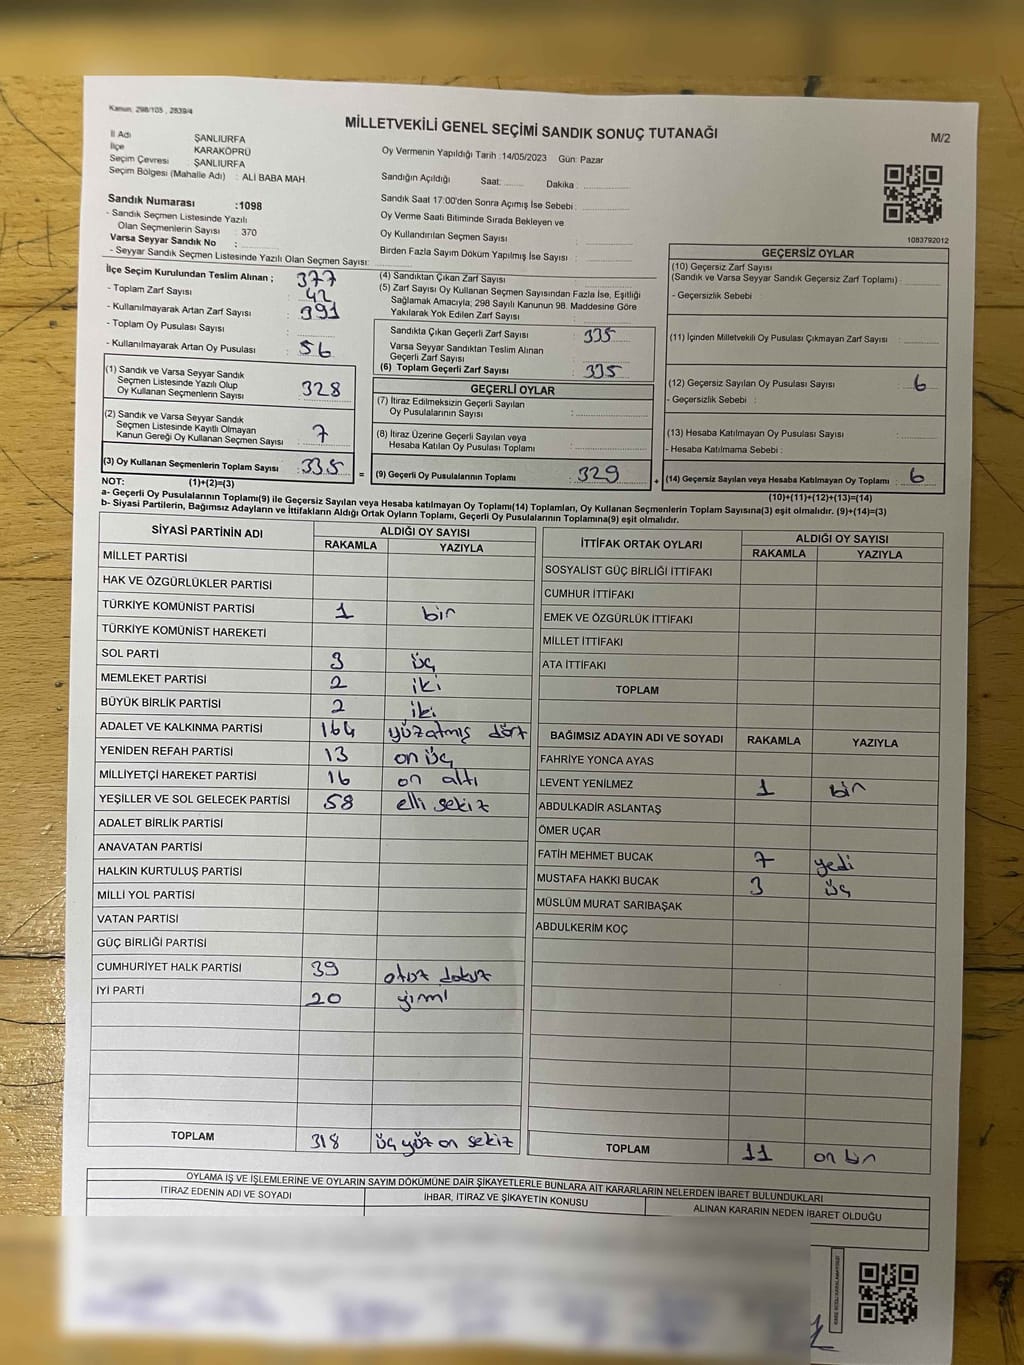 Kanun, 298/105 , 2839/4
MİLLETVEKİLİ GENEL SEÇİMİ SANDIK SONUÇ TUTANAĞI
M/2
İl Adı ŞANLIURFA
İlçe KARAKÖPRÜ
Seçim Çevresi : ŞANLIURFA
Seçim Bölgesi (Mahalle Adı) : ALİ BABA MAH.
Oy Vermenin Yapıldığı Tarih :14/05/2023 Gün: Pazar
Sandığın Açıldığı Saat: Dakika :
Sandık Numarası :1098
- Sandık Seçmen Listesinde Yazılı
Olan Seçmenlerin Sayısı : 370
Varsa Seyyar Sandık No :
- Seyyar Sandık Seçmen Listesinde Yazılı Olan Seçmen Sayısı:
Sandık Saat 17:00'den Sonra Açımış İse Sebebi :
Oy Verme Saati Bitiminde Sırada Bekleyen ve
Oy Kullandırılan Seçmen Sayısı :
Birden Fazla Sayım Döküm Yapılmış İse Sayısı :
1083792012
İlçe Seçim Kurulundan Teslim Alınan ; 377
- Toplam Zarf Sayısı : 42
- Kullanılmayarak Artan Zarf Sayısı : 391
- Toplam Oy Pusulası Sayısı :
- Kullanılmayarak Artan Oy Pusulası : 56
(1) Sandık ve Varsa Seyyar Sandık
Seçmen Listesinde Yazılı Olup
Oy Kullanan Seçmenlerin Sayısı : 328
(2) Sandık ve Varsa Seyyar Sandık
Seçmen Listesinde Kayıtlı Olmayan
Kanun Gereği Oy Kullanan Seçmen Sayısı : 7
(3) Oy Kullanan Seçmenlerin Toplam Sayısı : 335
(4) Sandıktan Çıkan Zarf Sayısı :
(5) Zarf Sayısı Oy Kullanan Seçmen Sayısından Fazla İse, Eşitliği
Sağlamak Amacıyla; 298 Sayılı Kanunun 98. Maddesine Göre
Yakılarak Yok Edilen Zarf Sayısı :
Sandıkta Çıkan Geçerli Zarf Sayısı : 335
Varsa Seyyar Sandıktan Teslim Alınan
Geçerli Zarf Sayısı :
(6) Toplam Geçerli Zarf Sayısı : 335
GEÇERLİ OYLAR
(7) İtiraz Edilmeksizin Geçerli Sayılan
Oy Pusulalarının Sayısı :
(8) İtiraz Üzerine Geçerli Sayılan veya
Hesaba Katılan Oy Pusulası Toplamı :
= (9) Geçerli Oy Pusulalarının Toplamı : 329
GEÇERSİZ OYLAR
(10) Geçersiz Zarf Sayısı
(Sandık ve Varsa Seyyar Sandık Geçersiz Zarf Toplamı) :
- Geçersizlik Sebebi :
(11) İçinden Milletvekili Oy Pusulası Çıkmayan Zarf Sayısı:
(12) Geçersiz Sayılan Oy Pusulası Sayısı : 6
- Geçersizlik Sebebi :
(13) Hesaba Katılmayan Oy Pusulası Sayısı :
- Hesaba Katılmama Sebebi :
+ (14) Geçersiz Sayılan veya Hesaba Katılmayan Oy Toplamı : 6
NOT: (1)+(2)=(3) (10)+(11)+(12)+(13)=(14)
a- Geçerli Oy Pusulalarının Toplamı(9) ile Geçersiz Sayılan veya Hesaba katılmayan Oy Toplamı(14) Toplamları, Oy Kullanan Seçmenlerin Toplam Sayısına(3) eşit olmalıdır. (9)+(14)=(3)
b- Siyasi Partilerin, Bağımsız Adayların ve İttifakların Aldığı Ortak Oyların Toplamı, Geçerli Oy Pusulalarının Toplamına(9) eşit olmalıdır.
SİYASİ PARTİNİN ADI ALDIĞI OY SAYISI
RAKAMLA YAZIYLA
MİLLET PARTİSİ
HAK VE ÖZGÜRLÜKLER PARTİSİ
TÜRKİYE KOMÜNİST PARTİSİ 1 bir
TÜRKİYE KOMÜNİST HAREKETİ
SOL PARTİ 3 üç
MEMLEKET PARTİSİ 2 iki
BÜYÜK BİRLİK PARTİSİ 2 iki
ADALET VE KALKINMA PARTİSİ 164 yüzatmış dört
YENİDEN REFAH PARTİSİ 13 on üç
MİLLİYETÇİ HAREKET PARTİSİ 16 on altı
YEŞİLLER VE SOL GELECEK PARTİSİ 58 elli sekiz
ADALET BİRLİK PARTİSİ
ANAVATAN PARTİSİ
HALKIN KURTULUŞ PARTİSİ
MİLLİ YOL PARTİSİ
VATAN PARTİSİ
GÜÇ BİRLİĞİ PARTİSİ
CUMHURİYET HALK PARTİSİ 39 otuz dokuz
İYİ PARTİ 20 yirmi
TOPLAM 318 üç yüz on sekiz
İTTİFAK ORTAK OYLARI ALDIĞI OY SAYISI
RAKAMLA YAZIYLA
SOSYALİST GÜÇ BİRLİĞİ İTTİFAKI
CUMHUR İTTİFAKI
EMEK VE ÖZGÜRLÜK İTTİFAKI
MİLLET İTTİFAKI
ATA İTTİFAKI
TOPLAM
BAĞIMSIZ ADAYIN ADI VE SOYADI RAKAMLA YAZIYLA
FAHRİYE YONCA AYAS
LEVENT YENİLMEZ 1 bir
ABDULKADİR ASLANTAŞ
ÖMER UÇAR
FATİH MEHMET BUCAK 7 yedi
MUSTAFA HAKKI BUCAK 3 üç
MÜSLÜM MURAT SARIBAŞAK
ABDULKERİM KOÇ
TOPLAM 11 on bir
OYLAMA İŞ VE İŞLEMLERİNE VE OYLARIN SAYIM DÖKÜMÜNE DAİR ŞİKAYETLERLE BUNLARA AİT KARARLARIN NELERDEN İBARET BULUNDUKLARI
İTİRAZ EDENİN ADI VE SOYADI İHBAR, İTİRAZ VE ŞİKAYETİN KONUSU ALINAN KARARIN NEDEN İBARET OLDUĞU